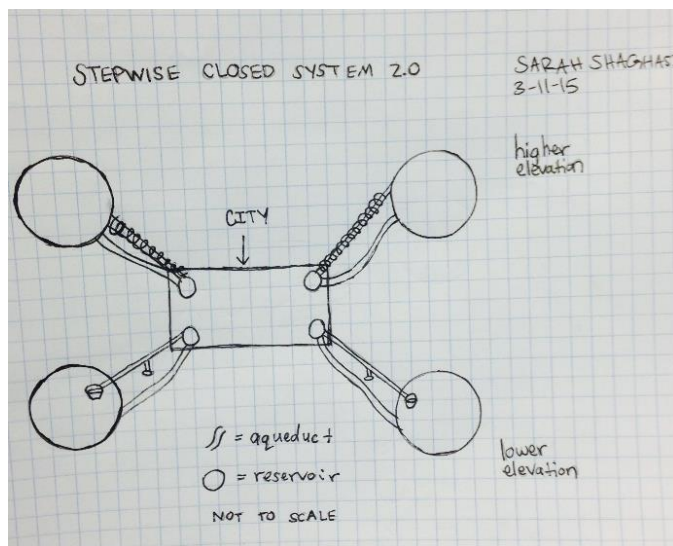 STEPWISE CLOSED SYSTEM 2.0
SARAH SHAGHAS
3-11-15
higher
elevation
CITY
= aqueduct
= reservoir
NOT TO SCALE
lower
elevation